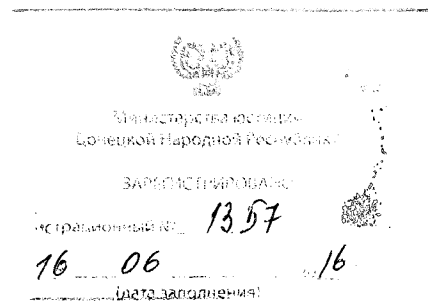 Министерства юстиции
Донецкой Народной Республики
ЗАРЕГИСТРИРОВАНО
истрационный № 1357
16 06 16
(дата заполнения)